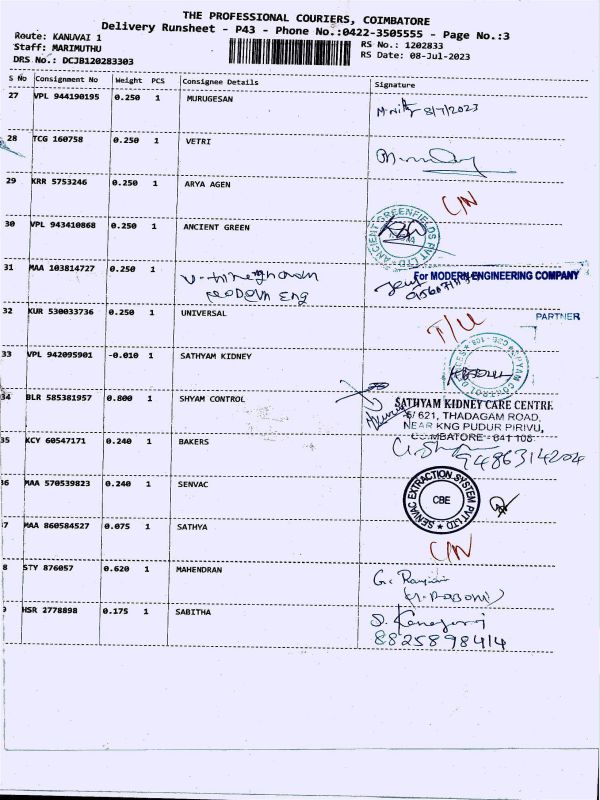 THE PROFESSIONAL COURIERS, COIMBATORE
Delivery Runsheet - P43 - Phone No.:0422-3505555 - Page No.:3
Route: KANUVAI 1
RS No.: 1202833
Staff: MARIMUTHU
RS Date: 08-Jul-2023
DRS No.: DCJB120283303
S No Consignment No Weight PCS Consignee Details Signature
27 VPL 944190195 0.250 1 MURUGESAN 8/7/2023
28 TCG 160758 0.250 1 VETRI
29 KRR 5753246 0.250 1 ARYA AGEN C/N
30 VPL 943410868 0.250 1 ANCIENT GREEN
ANCIENT GREENFIELDS PVT LTD
31 MAA 103814727 0.250 1
For MODERN ENGINEERING COMPANY
PARTNER
32 KUR 530033736 0.250 1 UNIVERSAL
33 VPL 942095901 -0.010 1 SATHYAM KIDNEY
34 BLR 585381957 0.800 1 SHYAM CONTROL
SATHYAM KIDNEY CARE CENTRE
6/ 621, THADAGAM ROAD,
NEAR KNG PUDUR PIRIVU,
COIMBATORE - 641 108
35 KCY 60547171 0.240 1 BAKERS 9486314204
36 MAA 570539823 0.240 1 SENVAC
SENVAC EXTRACTION SYSTEM PVT LTD
CBE
7 MAA 860584527 0.075 1 SATHYA C/N
8 STY 876057 0.620 1 MAHENDRAN
9 HSR 2778898 0.175 1 SABITHA
8825898414